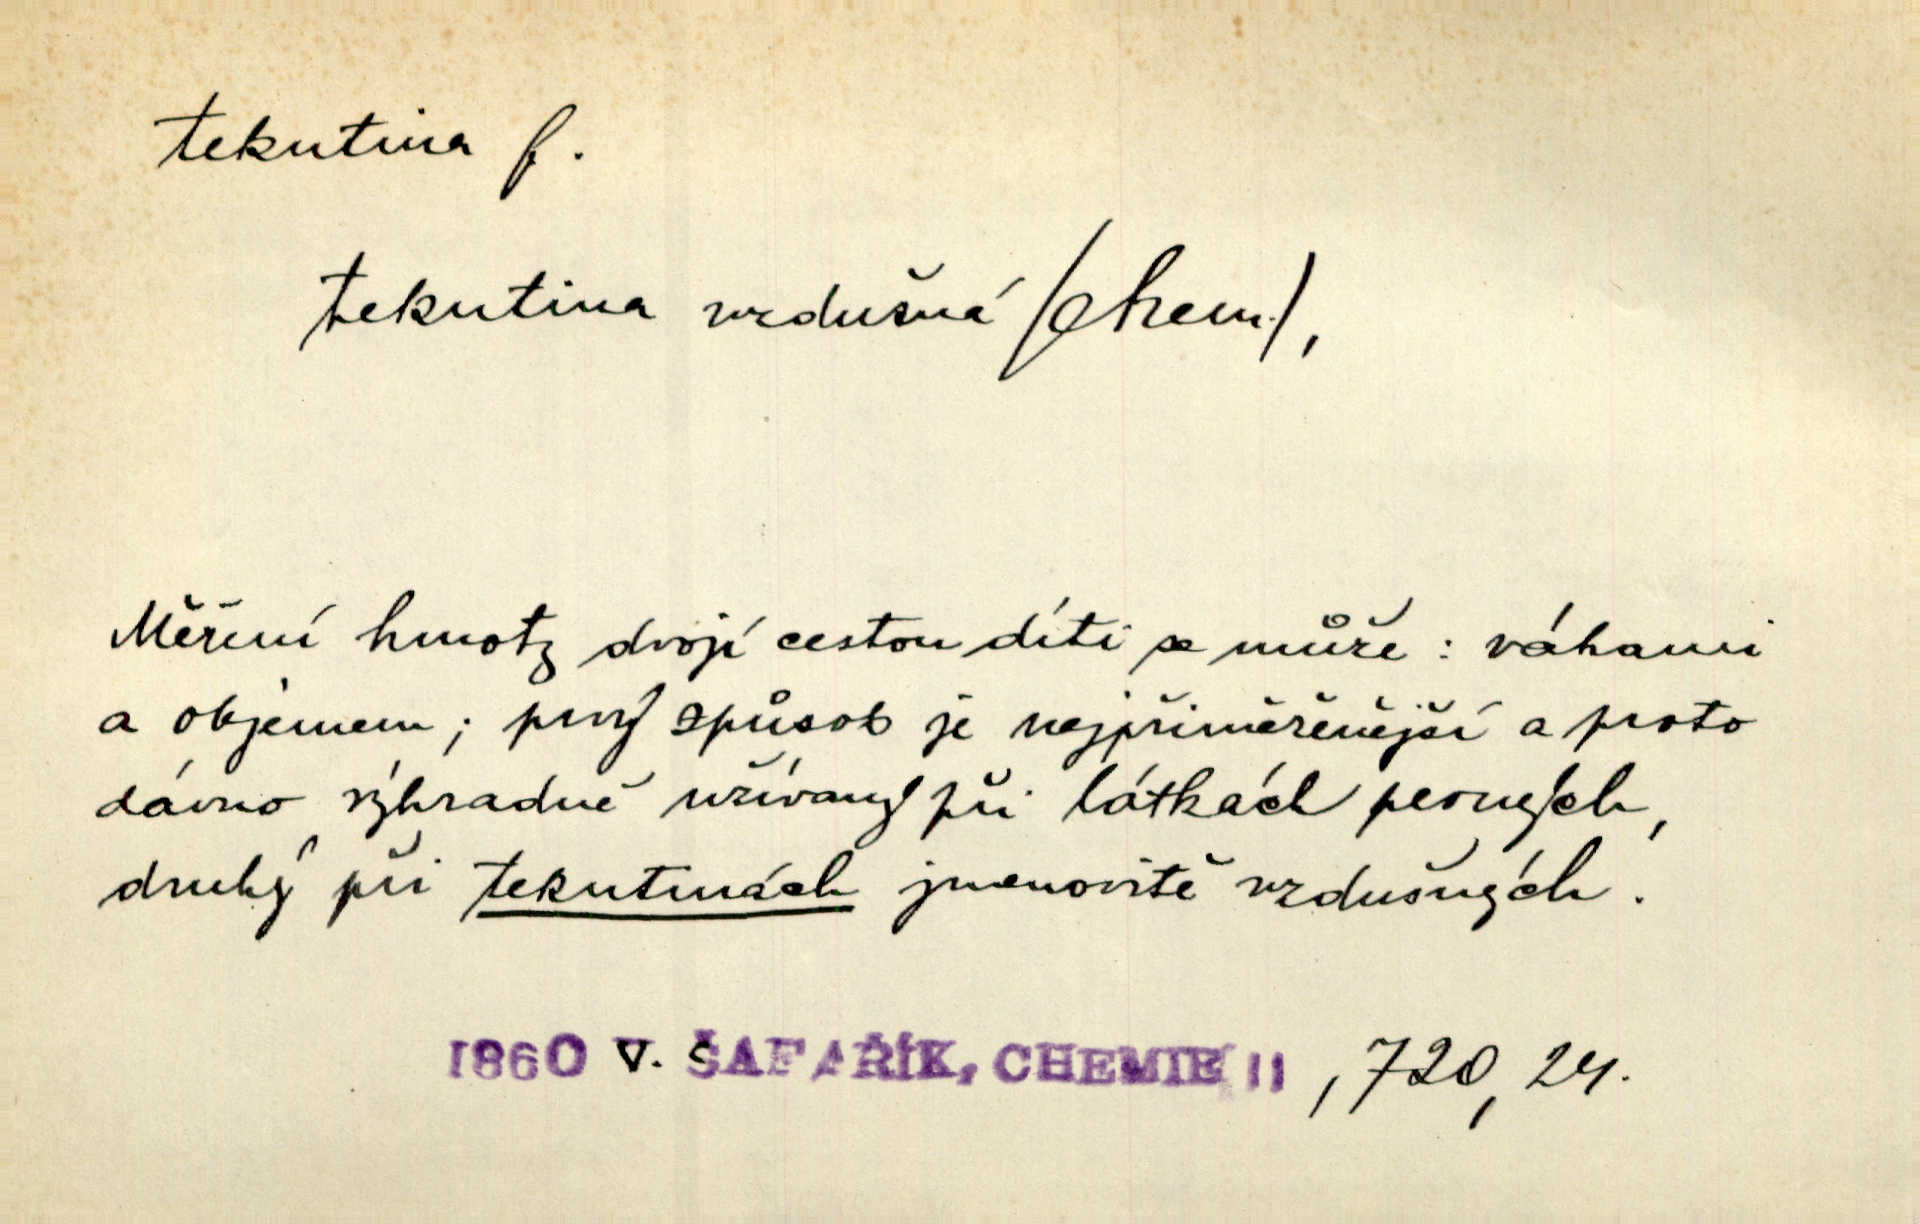 tekutina f.
tekutina vzdušná /chem./,
Měření hmoty dvojí cestou díti se může : váhami
a objemem ; prvý spůsob je nejpřiměřenější a proto
dávno výhradně užívaný při látkách pevných,
druhý při tekutinách jmenovitě vzdušných .
1860 V. ŠAFAŘÍK, CHEMIE II , 720, 24.